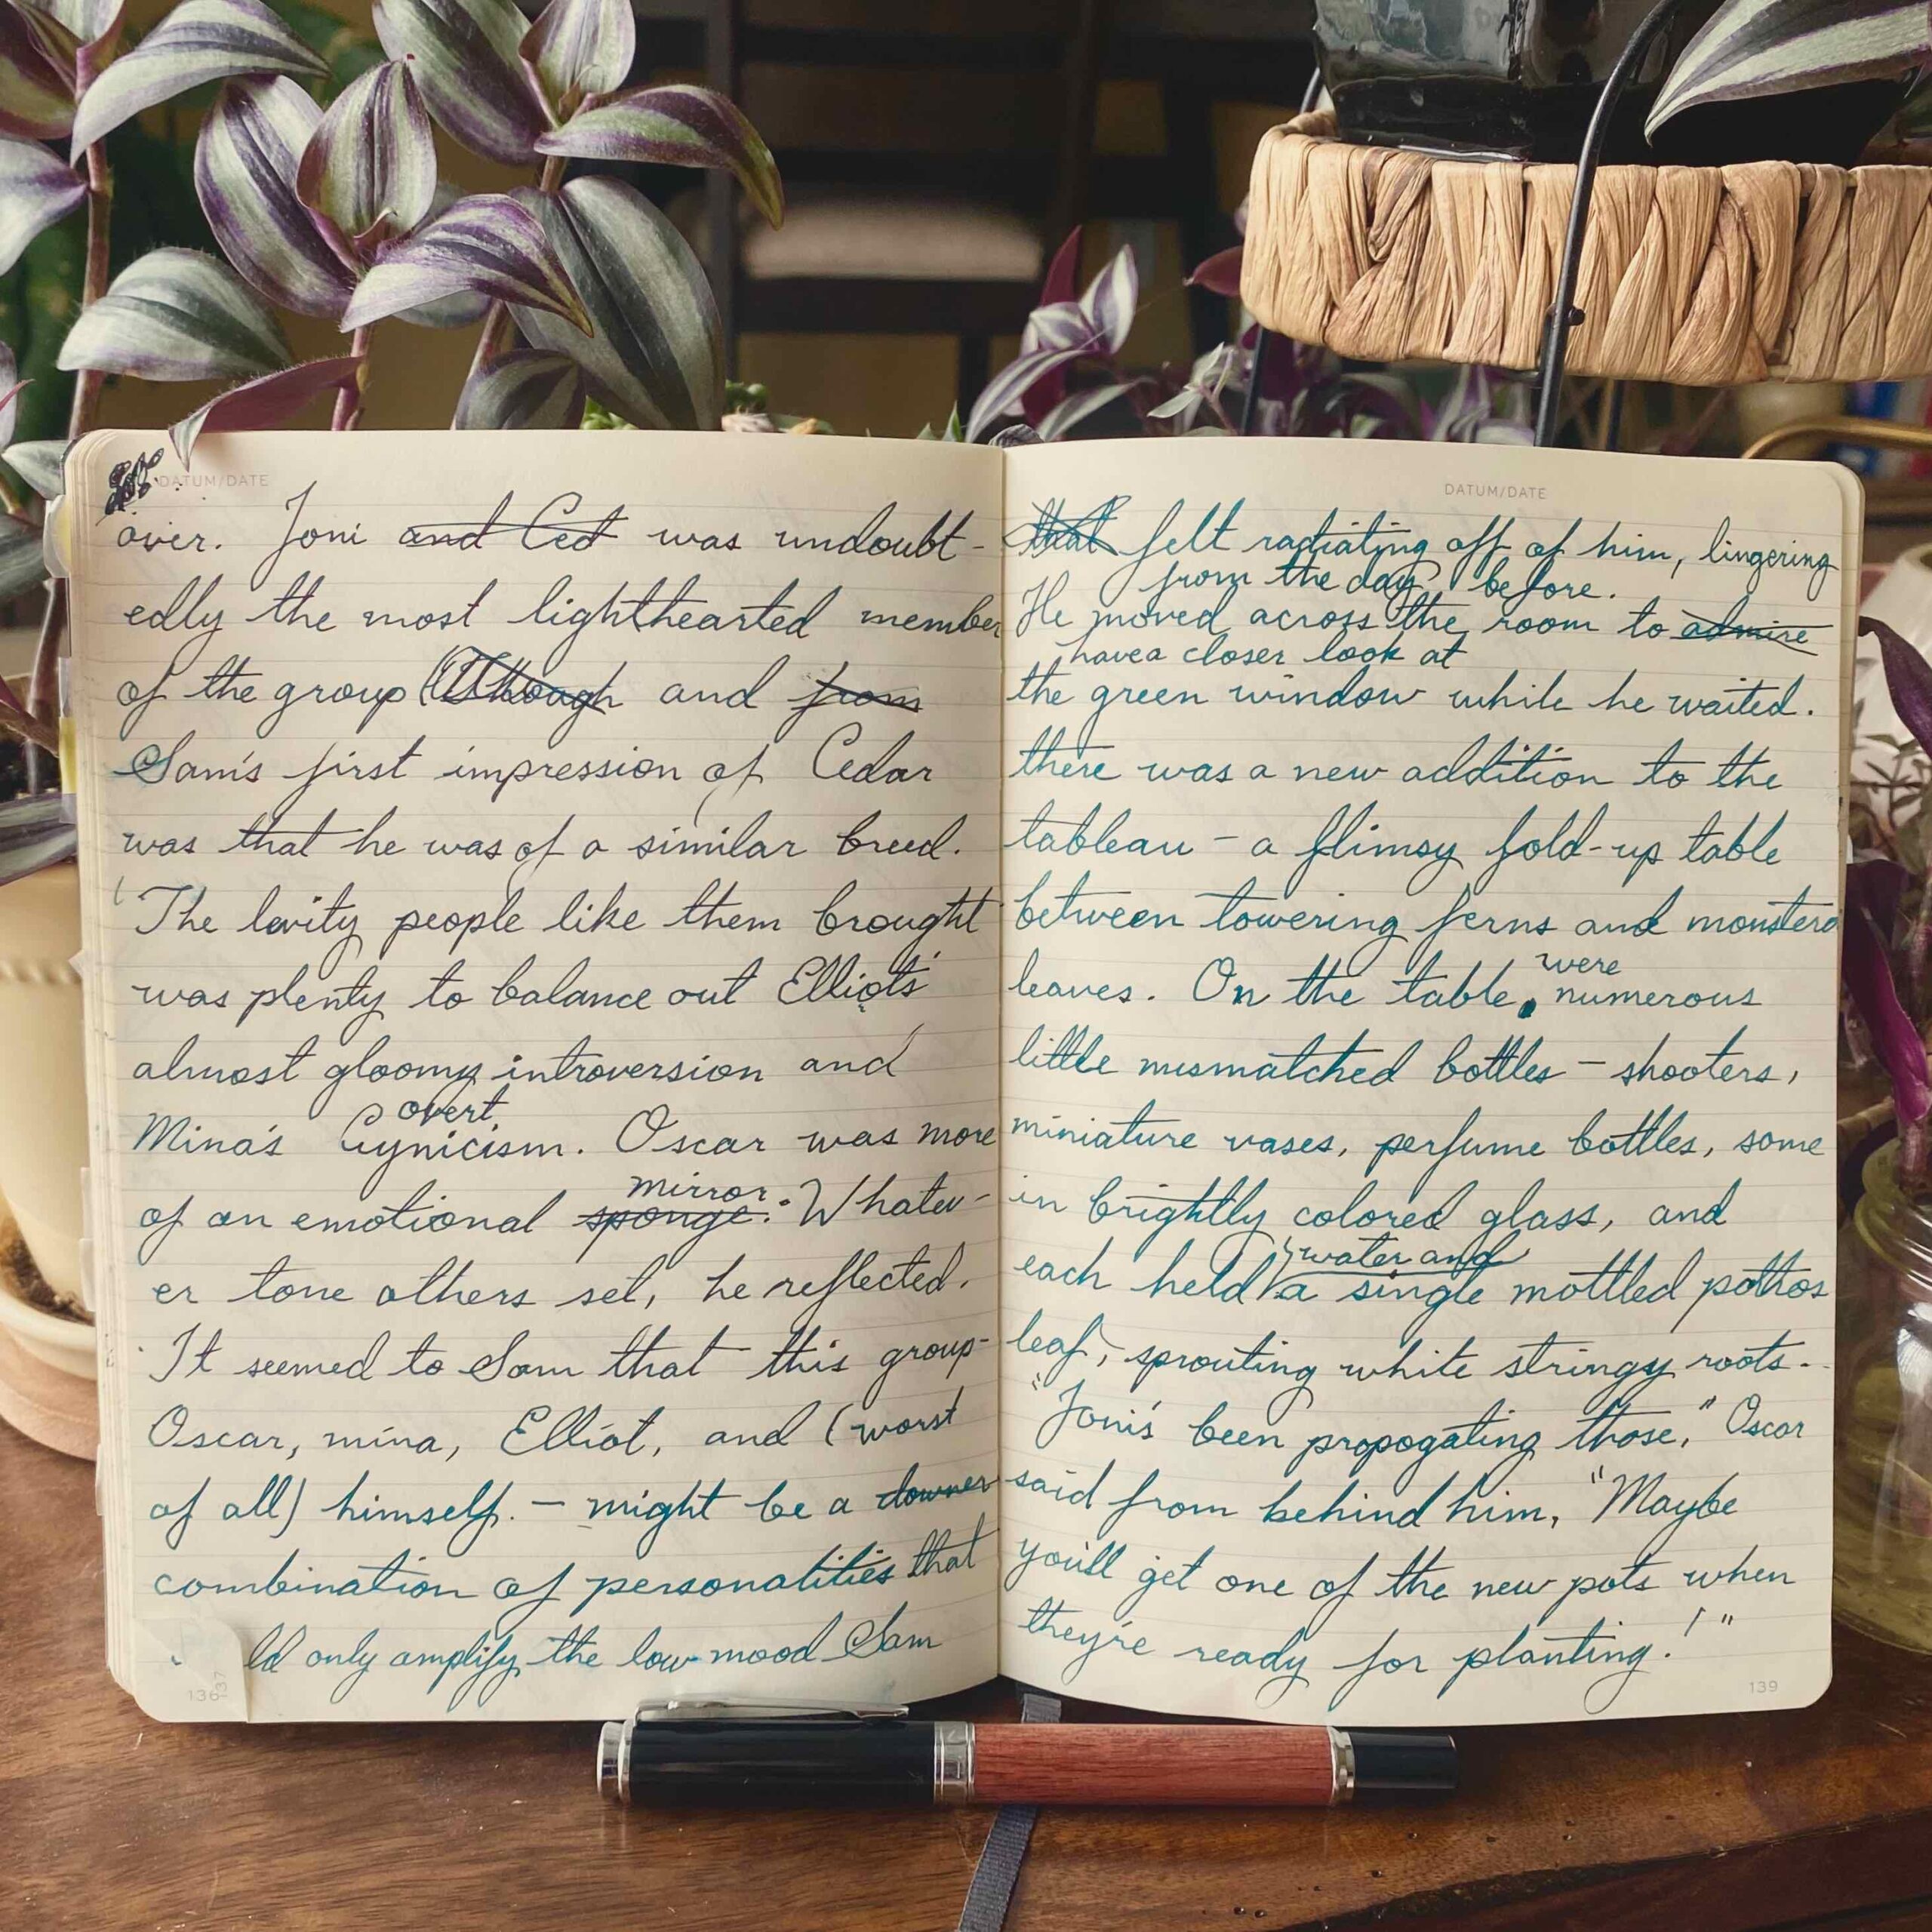 DATUM/DATE
over. Joni and Ced was undoubt-
edly the most lighthearted member
of the group (Although and from
Sam's first impression of Cedar
was that he was of a similar breed.
The levity people like them brought
was plenty to balance out Elliot's
almost gloomy introversion and
overt
Mina's Cynicism. Oscar was more
mirror.
of an emotional sponge. Whatev-
er tone others set, he reflected.
It seemed to Sam that this group-
Oscar, mina, Elliot, and (worst
of all) himself. - might be a downer
combination of personalities that
ld only amplify the low mood Sam
136
137
DATUM/DATE
that felt radiating off of him, lingering
from the day before.
He moved across the room to admire
have a closer look at
the green window while he waited.
there was a new addition to the
tableau - a flimsy fold-up table
between towering ferns and monstera
were
leaves. On the table, numerous
little mismatched bottles - shooters,
miniature vases, perfume bottles, some
in brightly colored glass, and
water and
each held a single mottled pothos
leaf, sprouting white stringy roots.
"Joni's been propogating those," Oscar
said from behind him, "Maybe
you'll get one of the new pots when
they're ready for planting!"
139